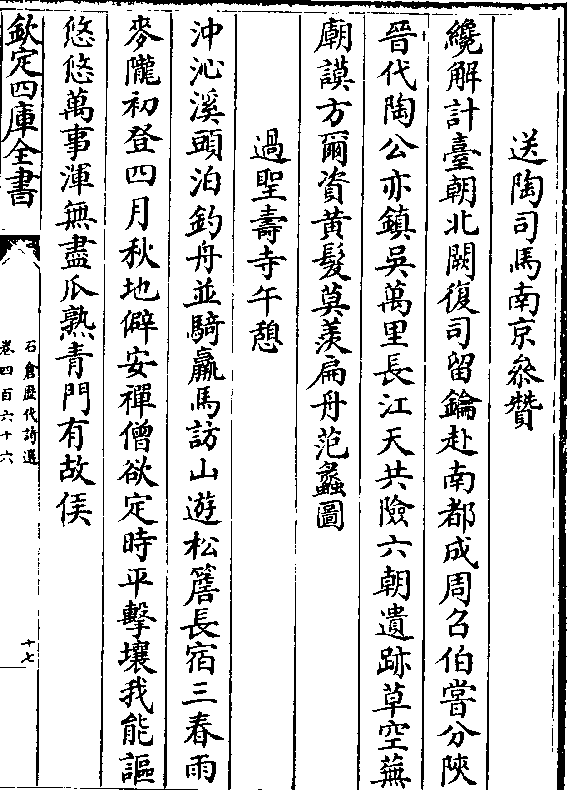 送陶司馬南京叅贊
纔解計臺朝北闕復司留鑰赴南都成周召伯嘗分陜
晉代陶公亦鎮吳萬里長江天共險六朝遺跡草空蕪
廟謨方爾資黄髮莫羨扁舟范蠡圖
過聖壽寺午憩
沖沁溪頭泊釣舟並騎羸馬訪山遊松簷長宿三春雨
麥隴初登四月秋地僻安禪僧欲定時平擊壤我能謳
悠悠萬事渾無盡瓜熟青門有故侯
欽定四庫全書
石倉歴代詩選
卷四百六十六
十七